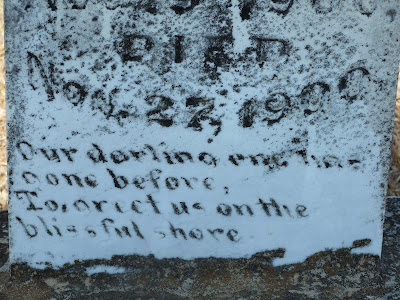 DIED
Nov 27, 1900
Our darling one has
gone before,
To greet us on the
blissful shore.